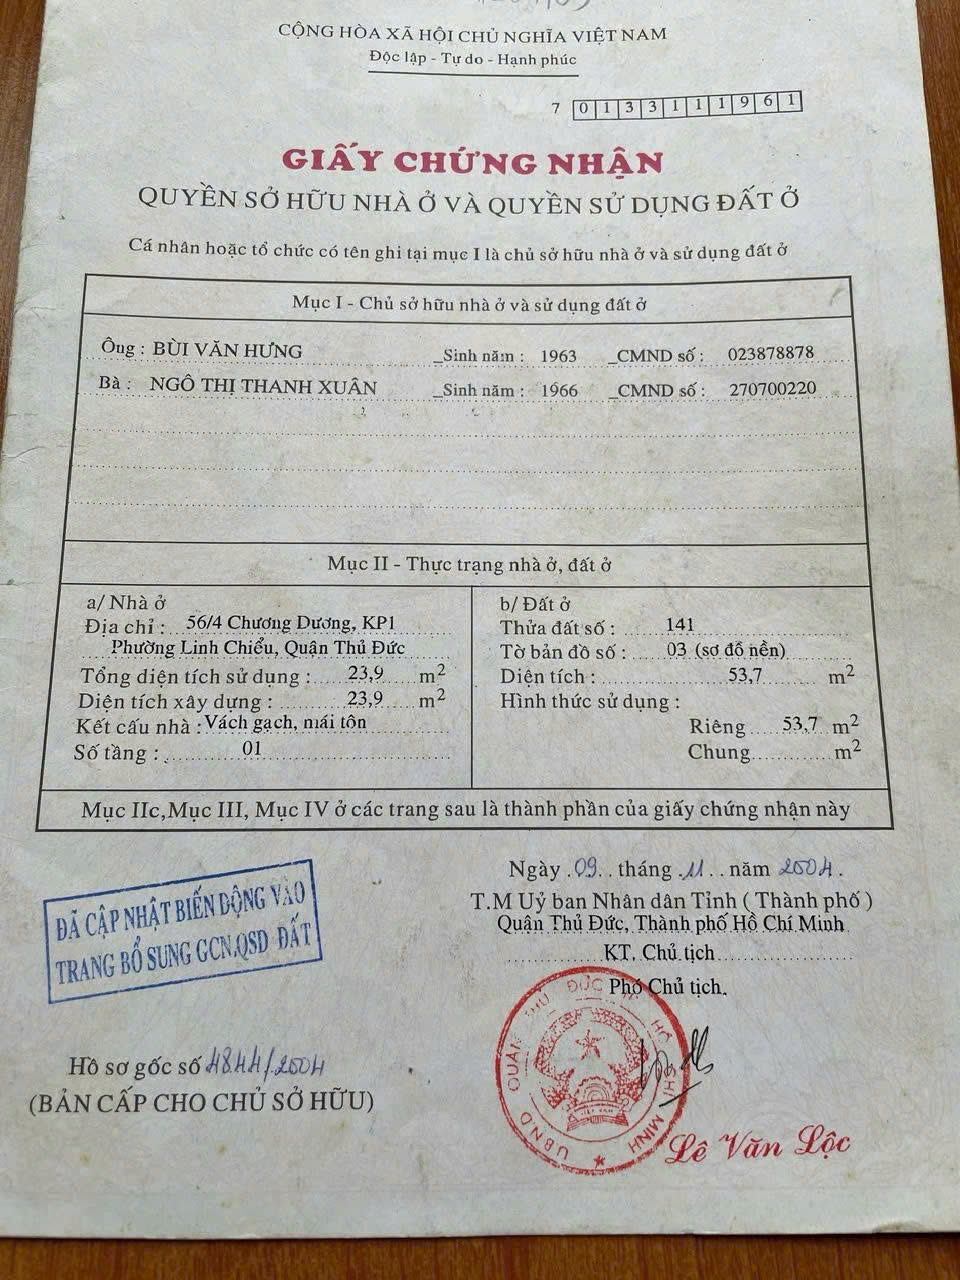 CỘNG HÒA XÃ HỘI CHỦ NGHĨA VIỆT NAM
Độc lập - Tự do - Hạnh phúc
7 0133111961
GIẤY CHỨNG NHẬN
QUYỀN SỞ HỮU NHÀ Ở VÀ QUYỀN SỬ DỤNG ĐẤT Ở
Cá nhân hoặc tổ chức có tên ghi tại mục I là chủ sở hữu nhà ở và sử dụng đất ở
Mục I - Chủ sở hữu nhà ở và sử dụng đất ở
Ông : BÙI VĂN HƯNG _Sinh năm : 1963 _CMND số : 023878878
Bà : NGÔ THỊ THANH XUÂN _Sinh năm : 1966 _CMND số : 270700220
Mục II - Thực trạng nhà ở, đất ở
a/ Nhà ở
Địa chỉ : 56/4 Chương Dương, KP1
Phường Linh Chiểu, Quận Thủ Đức
Tổng diện tích sử dụng : 23,9 m2
Diện tích xây dựng : 23,9 m2
Kết cấu nhà : Vách gạch, mái tôn
Số tầng : 01
b/ Đất ở
Thửa đất số : 141
Tờ bản đồ số : 03 (sơ đồ nền)
Diện tích : 53,7 m2
Hình thức sử dụng :
Riêng 53,7 m2
Chung m2
Mục IIc, Mục III, Mục IV ở các trang sau là thành phần của giấy chứng nhận này
Ngày 09 tháng 11 năm 2004
T.M Uỷ ban Nhân dân Tỉnh ( Thành phố )
Quận Thủ Đức, Thành phố Hồ Chí Minh
KT. Chủ tịch
Phó Chủ tịch
ĐÃ CẬP NHẬT BIẾN ĐỘNG VÀO
TRANG BỔ SUNG GCN.QSD ĐẤT
Hồ sơ gốc số 4844/2004
(BẢN CẤP CHO CHỦ SỞ HỮU)
U.B.N.D QUẬN THỦ ĐỨC TP HỒ CHÍ MINH
Lê Văn Lộc